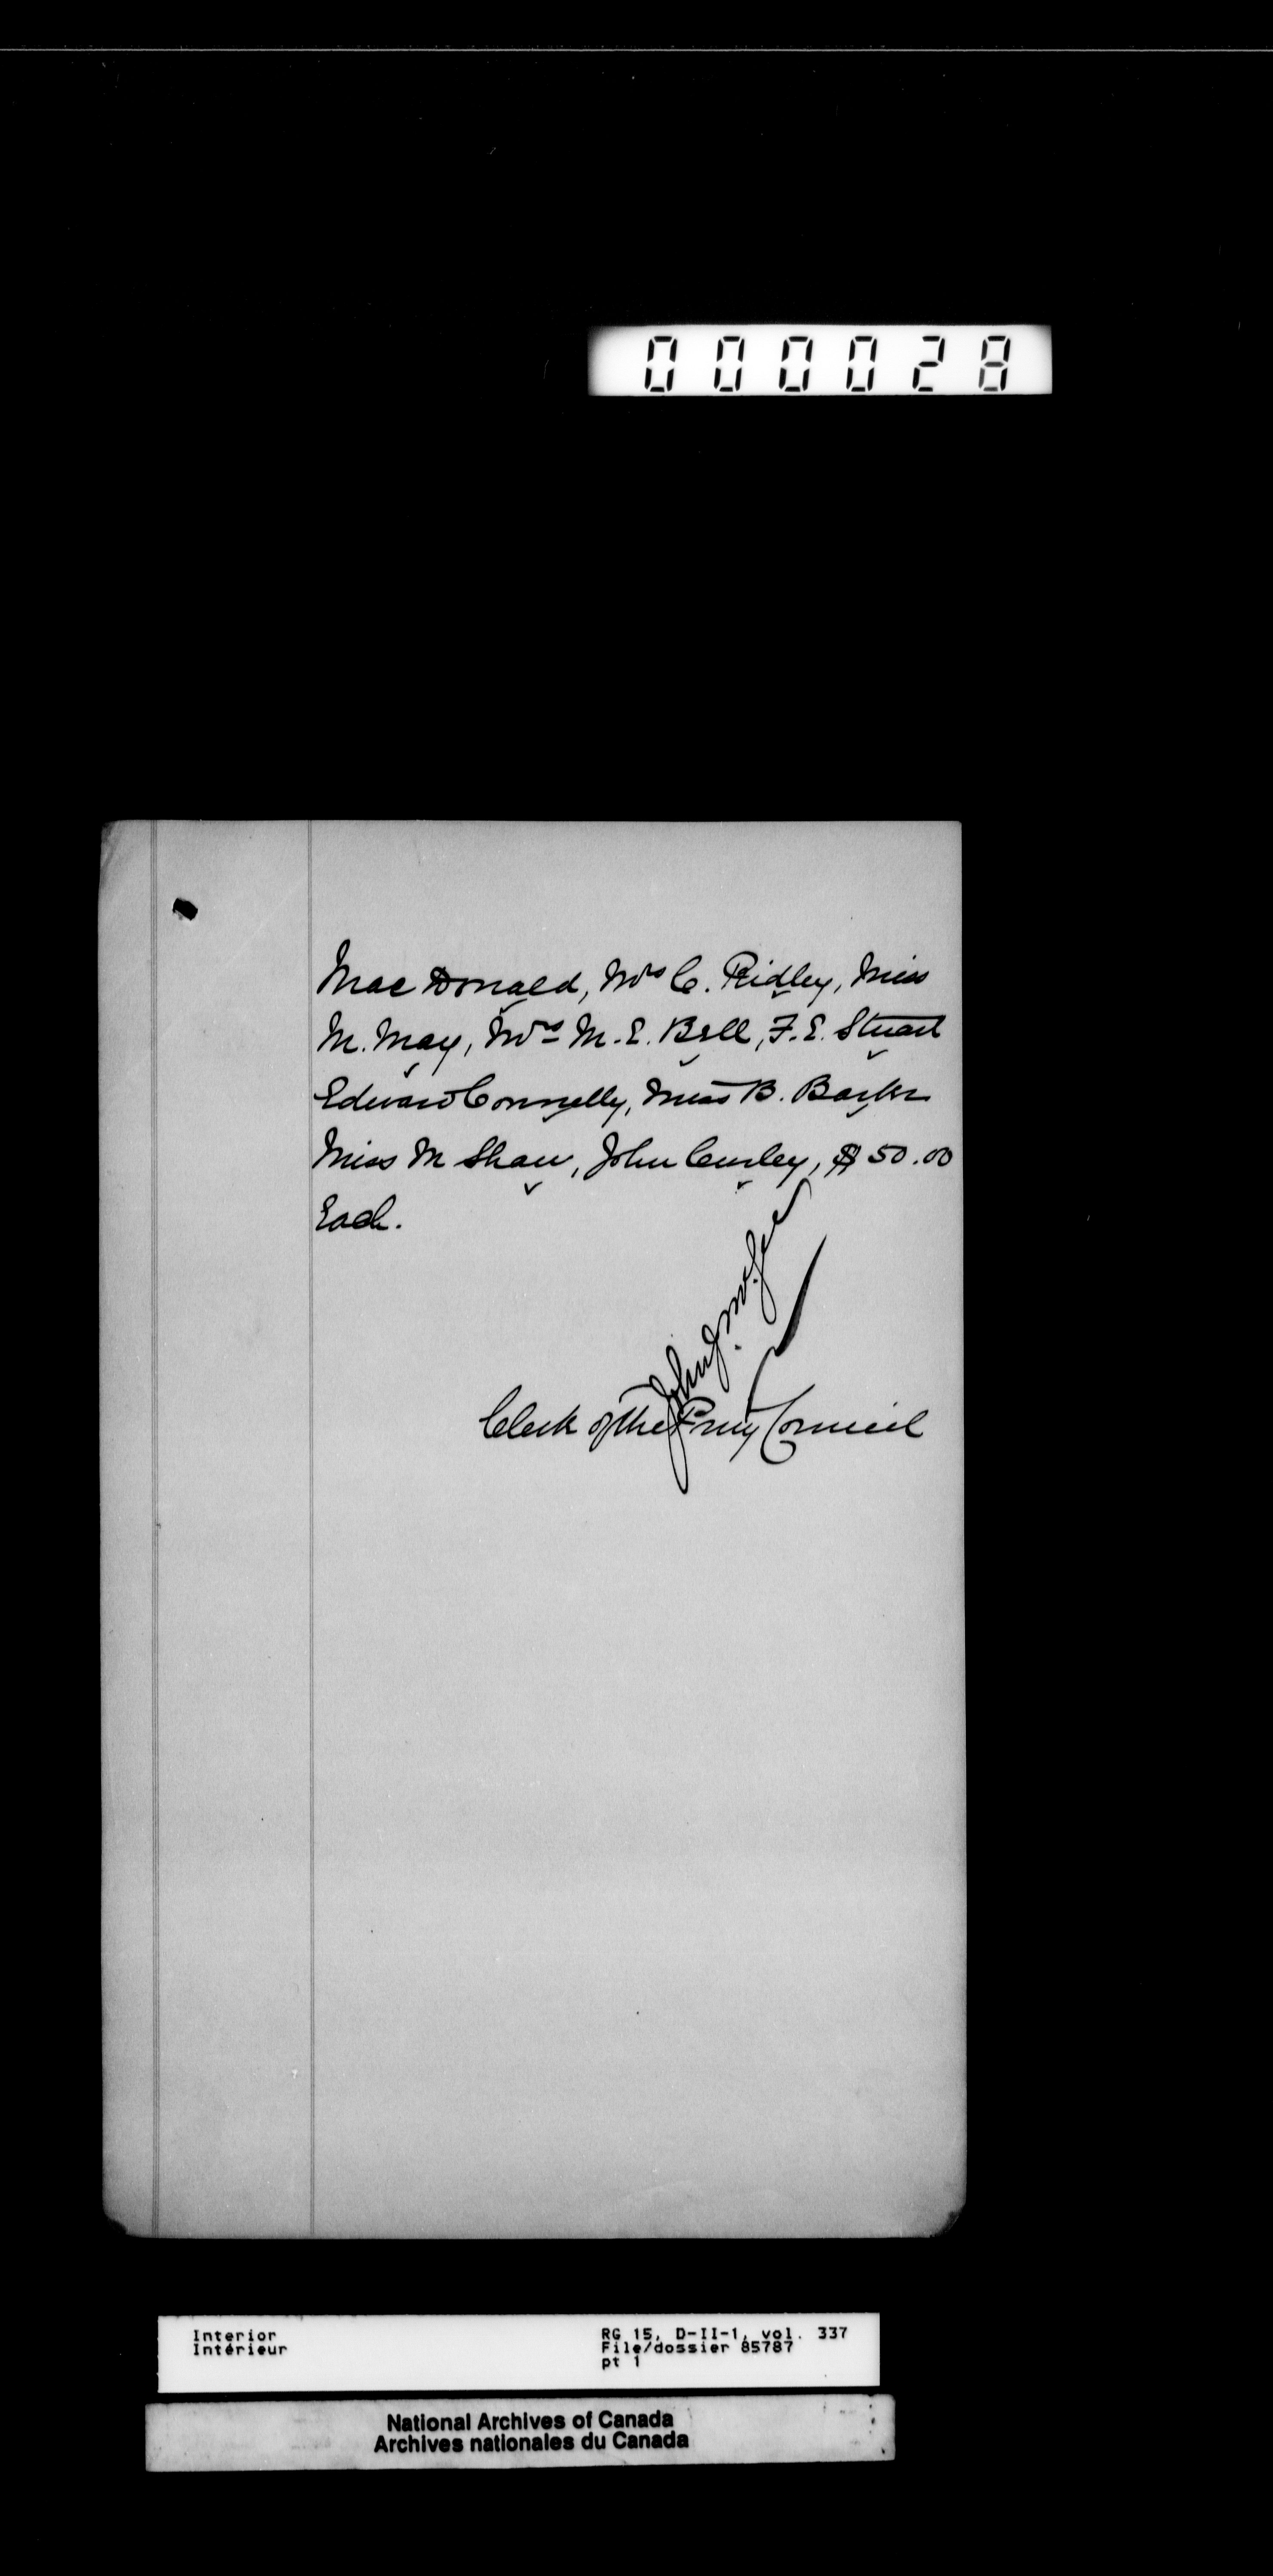 000028
Mac Donald, Mrs C. Ridley, Miss
M. May, Mrs M. E. Bell, F. E. Stuart
Edward Connelly, Miss B. Barker
Miss M Shaw, John Curley, $50.00
Each.
John J. McGee
Clerk of the Privy Council
Interior
Intérieur
RG 15, D-II-1, vol. 337
File/dossier 85787
pt 1
National Archives of Canada
Archives nationales du Canada